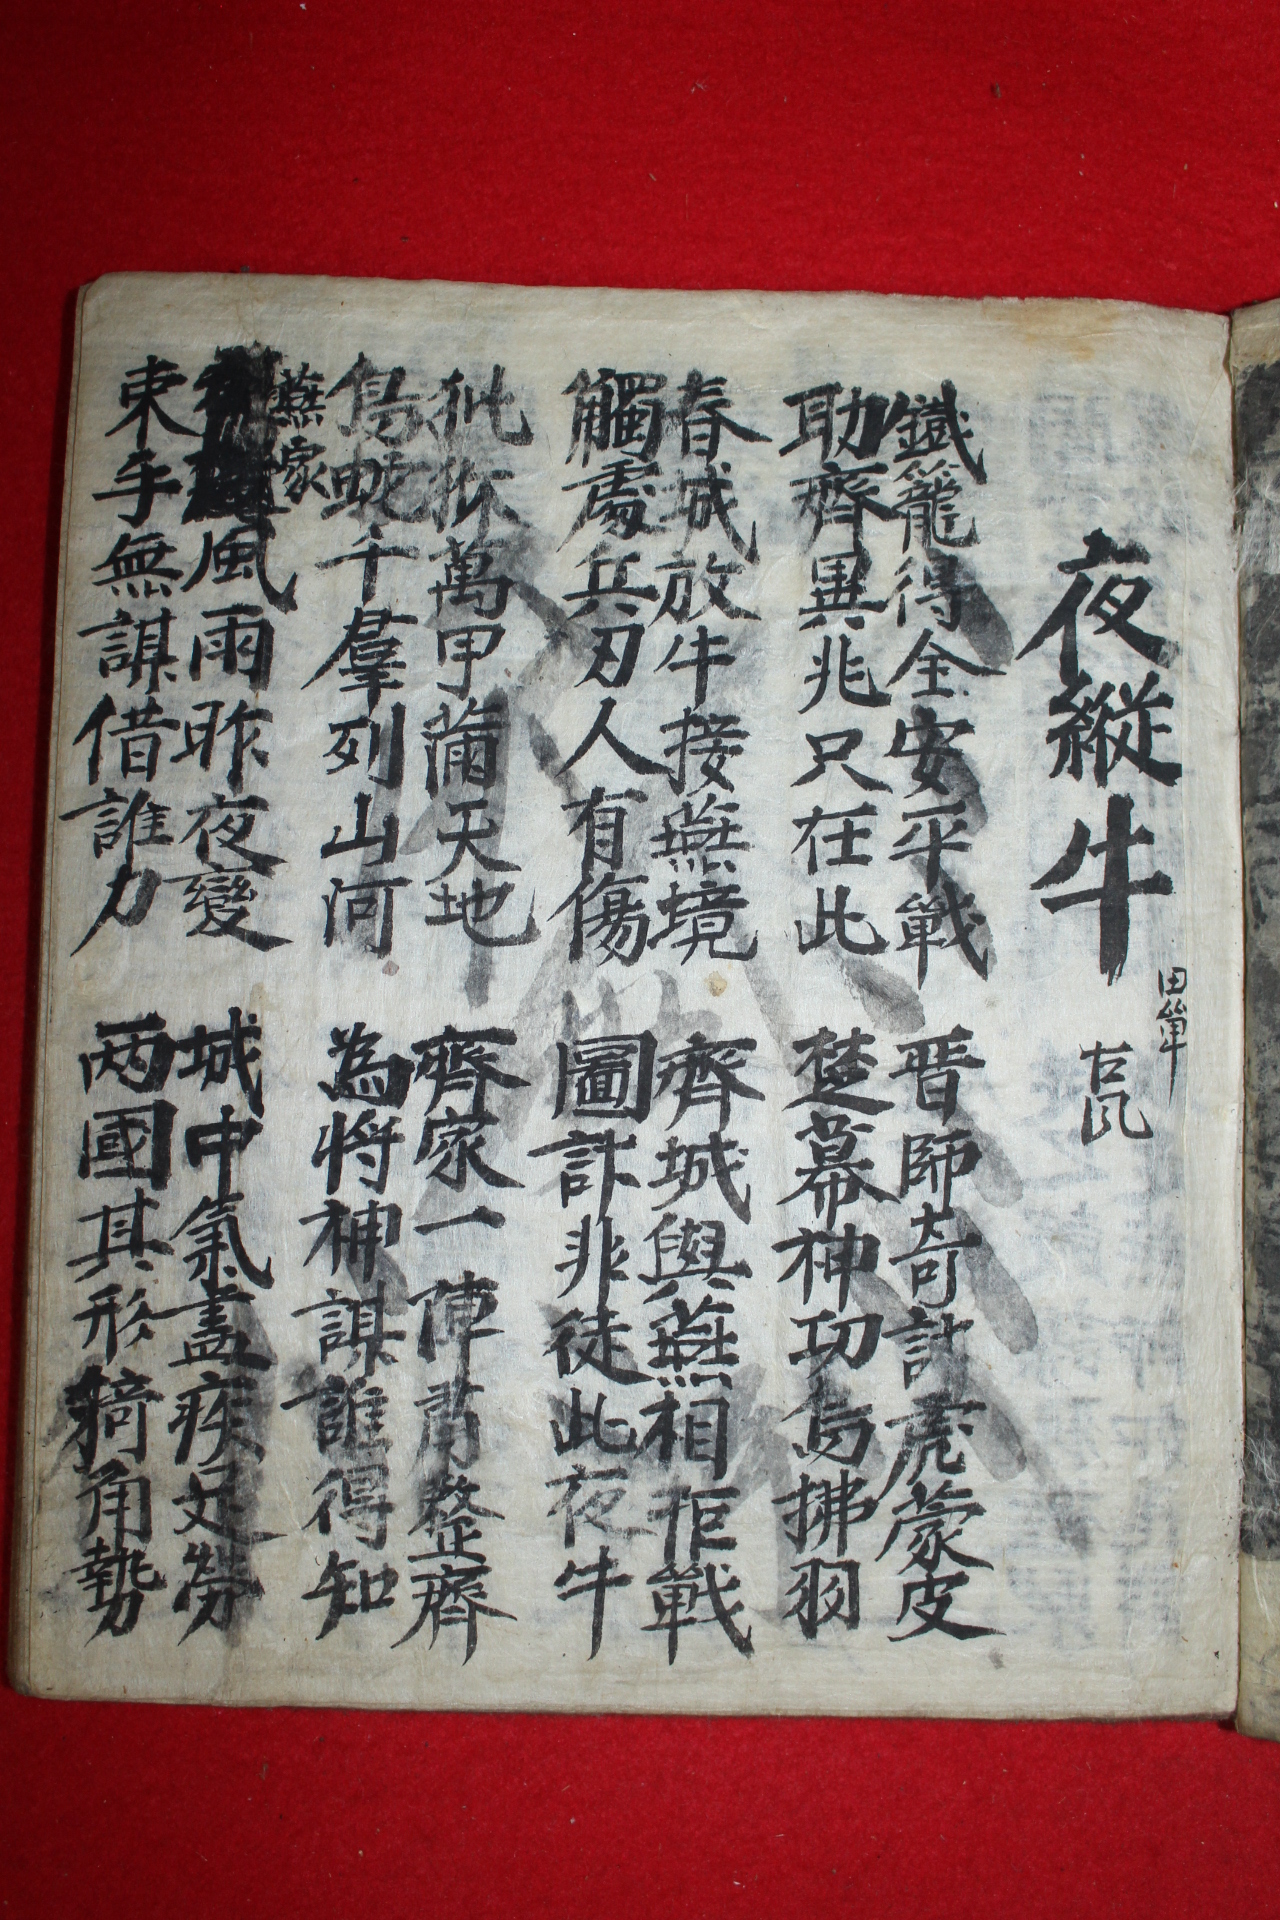 夜縱牛 田單 古風
鐵籠得全安平戰 晋師奇計虎蒙皮
助齊異兆只在此 楚幕神功烏拂羽
春城放牛接燕境 齊城與燕相拒戰
觸處兵刃人有傷 圖計非徒此夜牛
萬甲滿天地 齊家一陣整齊
千羣列山河 為將神謀誰得知
燕家風雨昨夜變 城中氣盡疾足勞
束手無謀借誰力 两國其形犄角勢